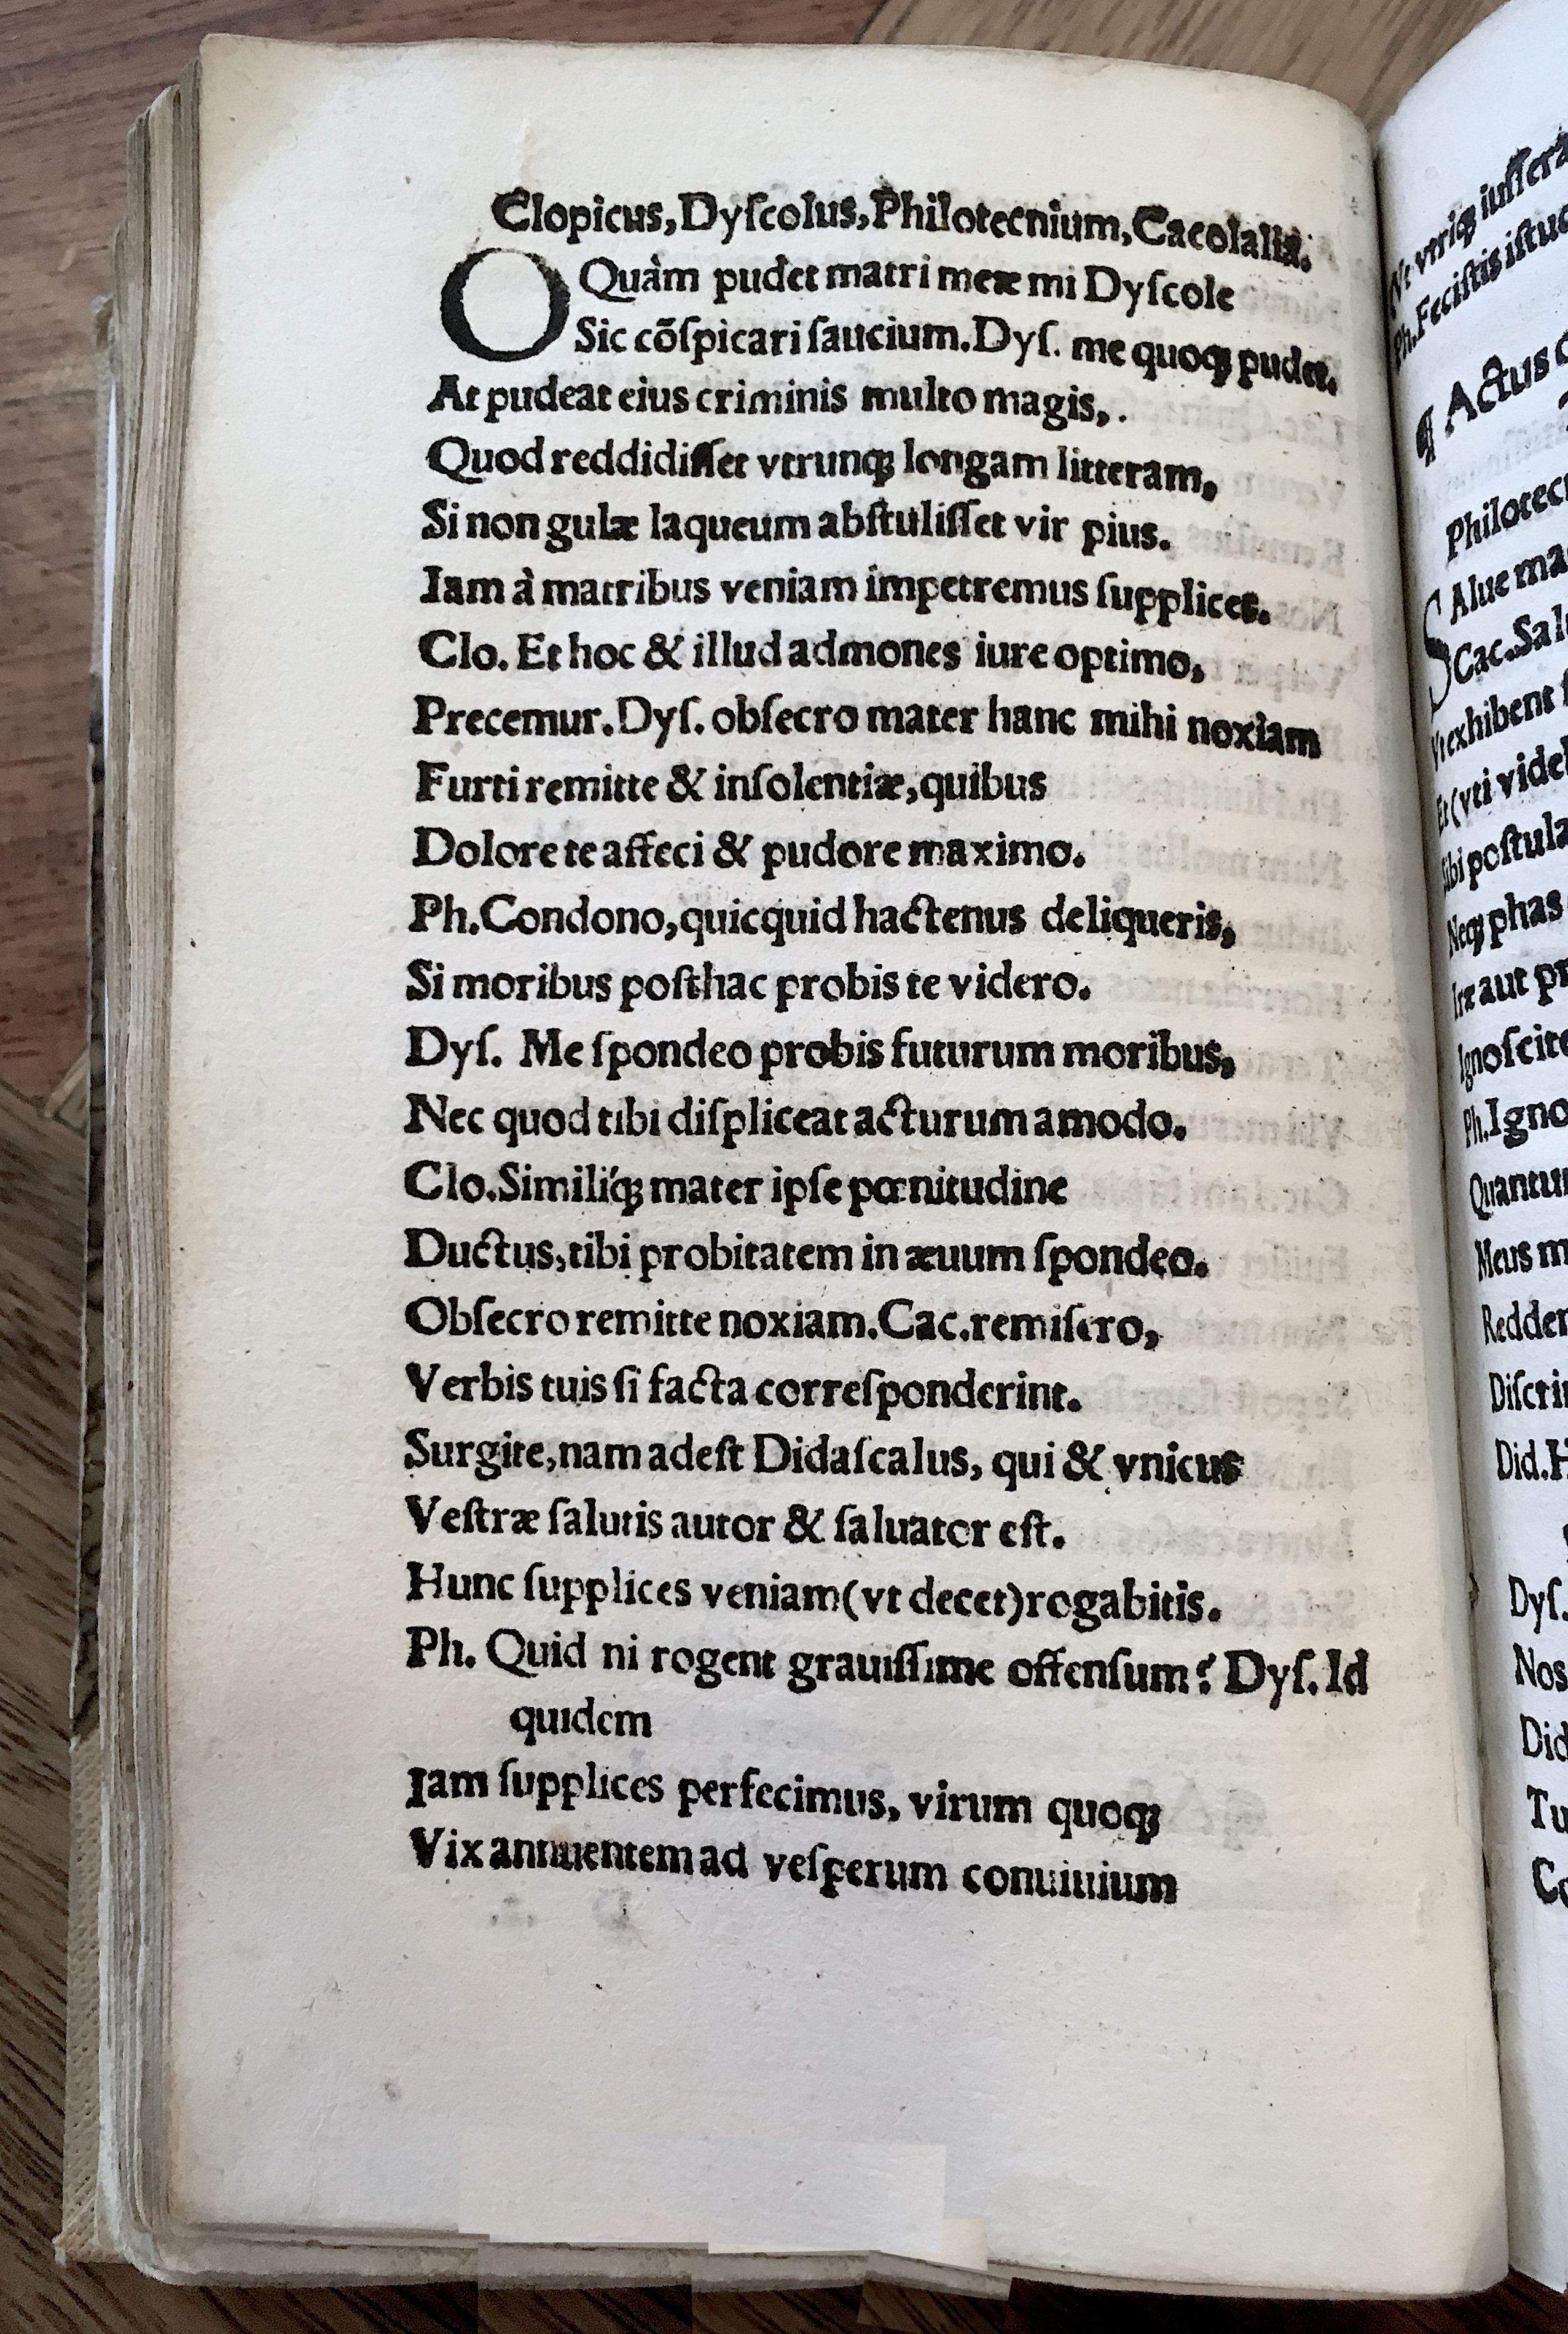 Clopicus, Dyſcolus, Philotecnium, Cacolalia.
O Quàm pudet matri meæ mi Dyſcole
Sic cõſpicari ſaucium. Dyſ. me quoq; pudet.
At pudeat eius criminis multo magis, .
Quod reddidiſſet vtrunq; longam litteram,
Si non gulæ laqueum abſtuliſſet vir pius.
Iam à matribus veniam impetremus ſupplices.
Clo. Et hoc & illud admones iure optimo,
Precemur. Dyſ. obſecro mater hanc mihi noxiam
Furti remitte & inſolentiæ, quibus
Dolore te affeci & pudore maximo.
Ph. Condono, quicquid hactenus deliqueris,
Si moribus poſthac probis te videro.
Dyſ. Me ſpondeo probis futurum moribus,
Nec quod tibi diſpliceat acturum amodo.
Clo. Similíq; mater ipſe pœnitudine
Ductus, tibi probitatem in æuum ſpondeo.
Obſecro remitte noxiam. Cac. remiſero,
Verbis tuis ſi facta correſponderint.
Surgite, nam adeſt Didaſcalus, qui & vnicus
Veſtræ ſalutis autor & ſaluator eſt.
Hunc ſupplices veniam (vt decet) rogabitis.
Ph. Quid ni rogent grauiſſime offenſum? Dyſ. Id
quidem
Iam ſupplices perfecimus, virum quoq;
Vix annuentem ad veſperum conuiuium
Vt vtriq;
Ph. Feciſtis iſtuc
¶ Actus
SAlue
Cac.
Vt exhibent
Et (vti
Sibi
Neq; phas
Iræ aut
Ignoſcite
Ph.
Meus
Did.
Dyſ.
Nos
Did
Tu